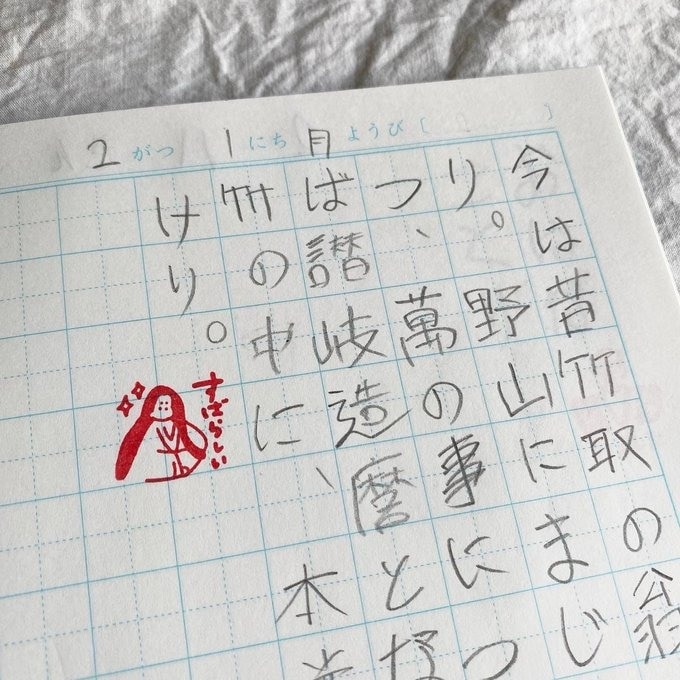 2がつ 1にち 月ようび [ ]
今は昔竹取の翁
り。野山にまじ
つ、萬の事につ
ば讃岐造麿とな
竹の中に、本
けり。
すばらしい